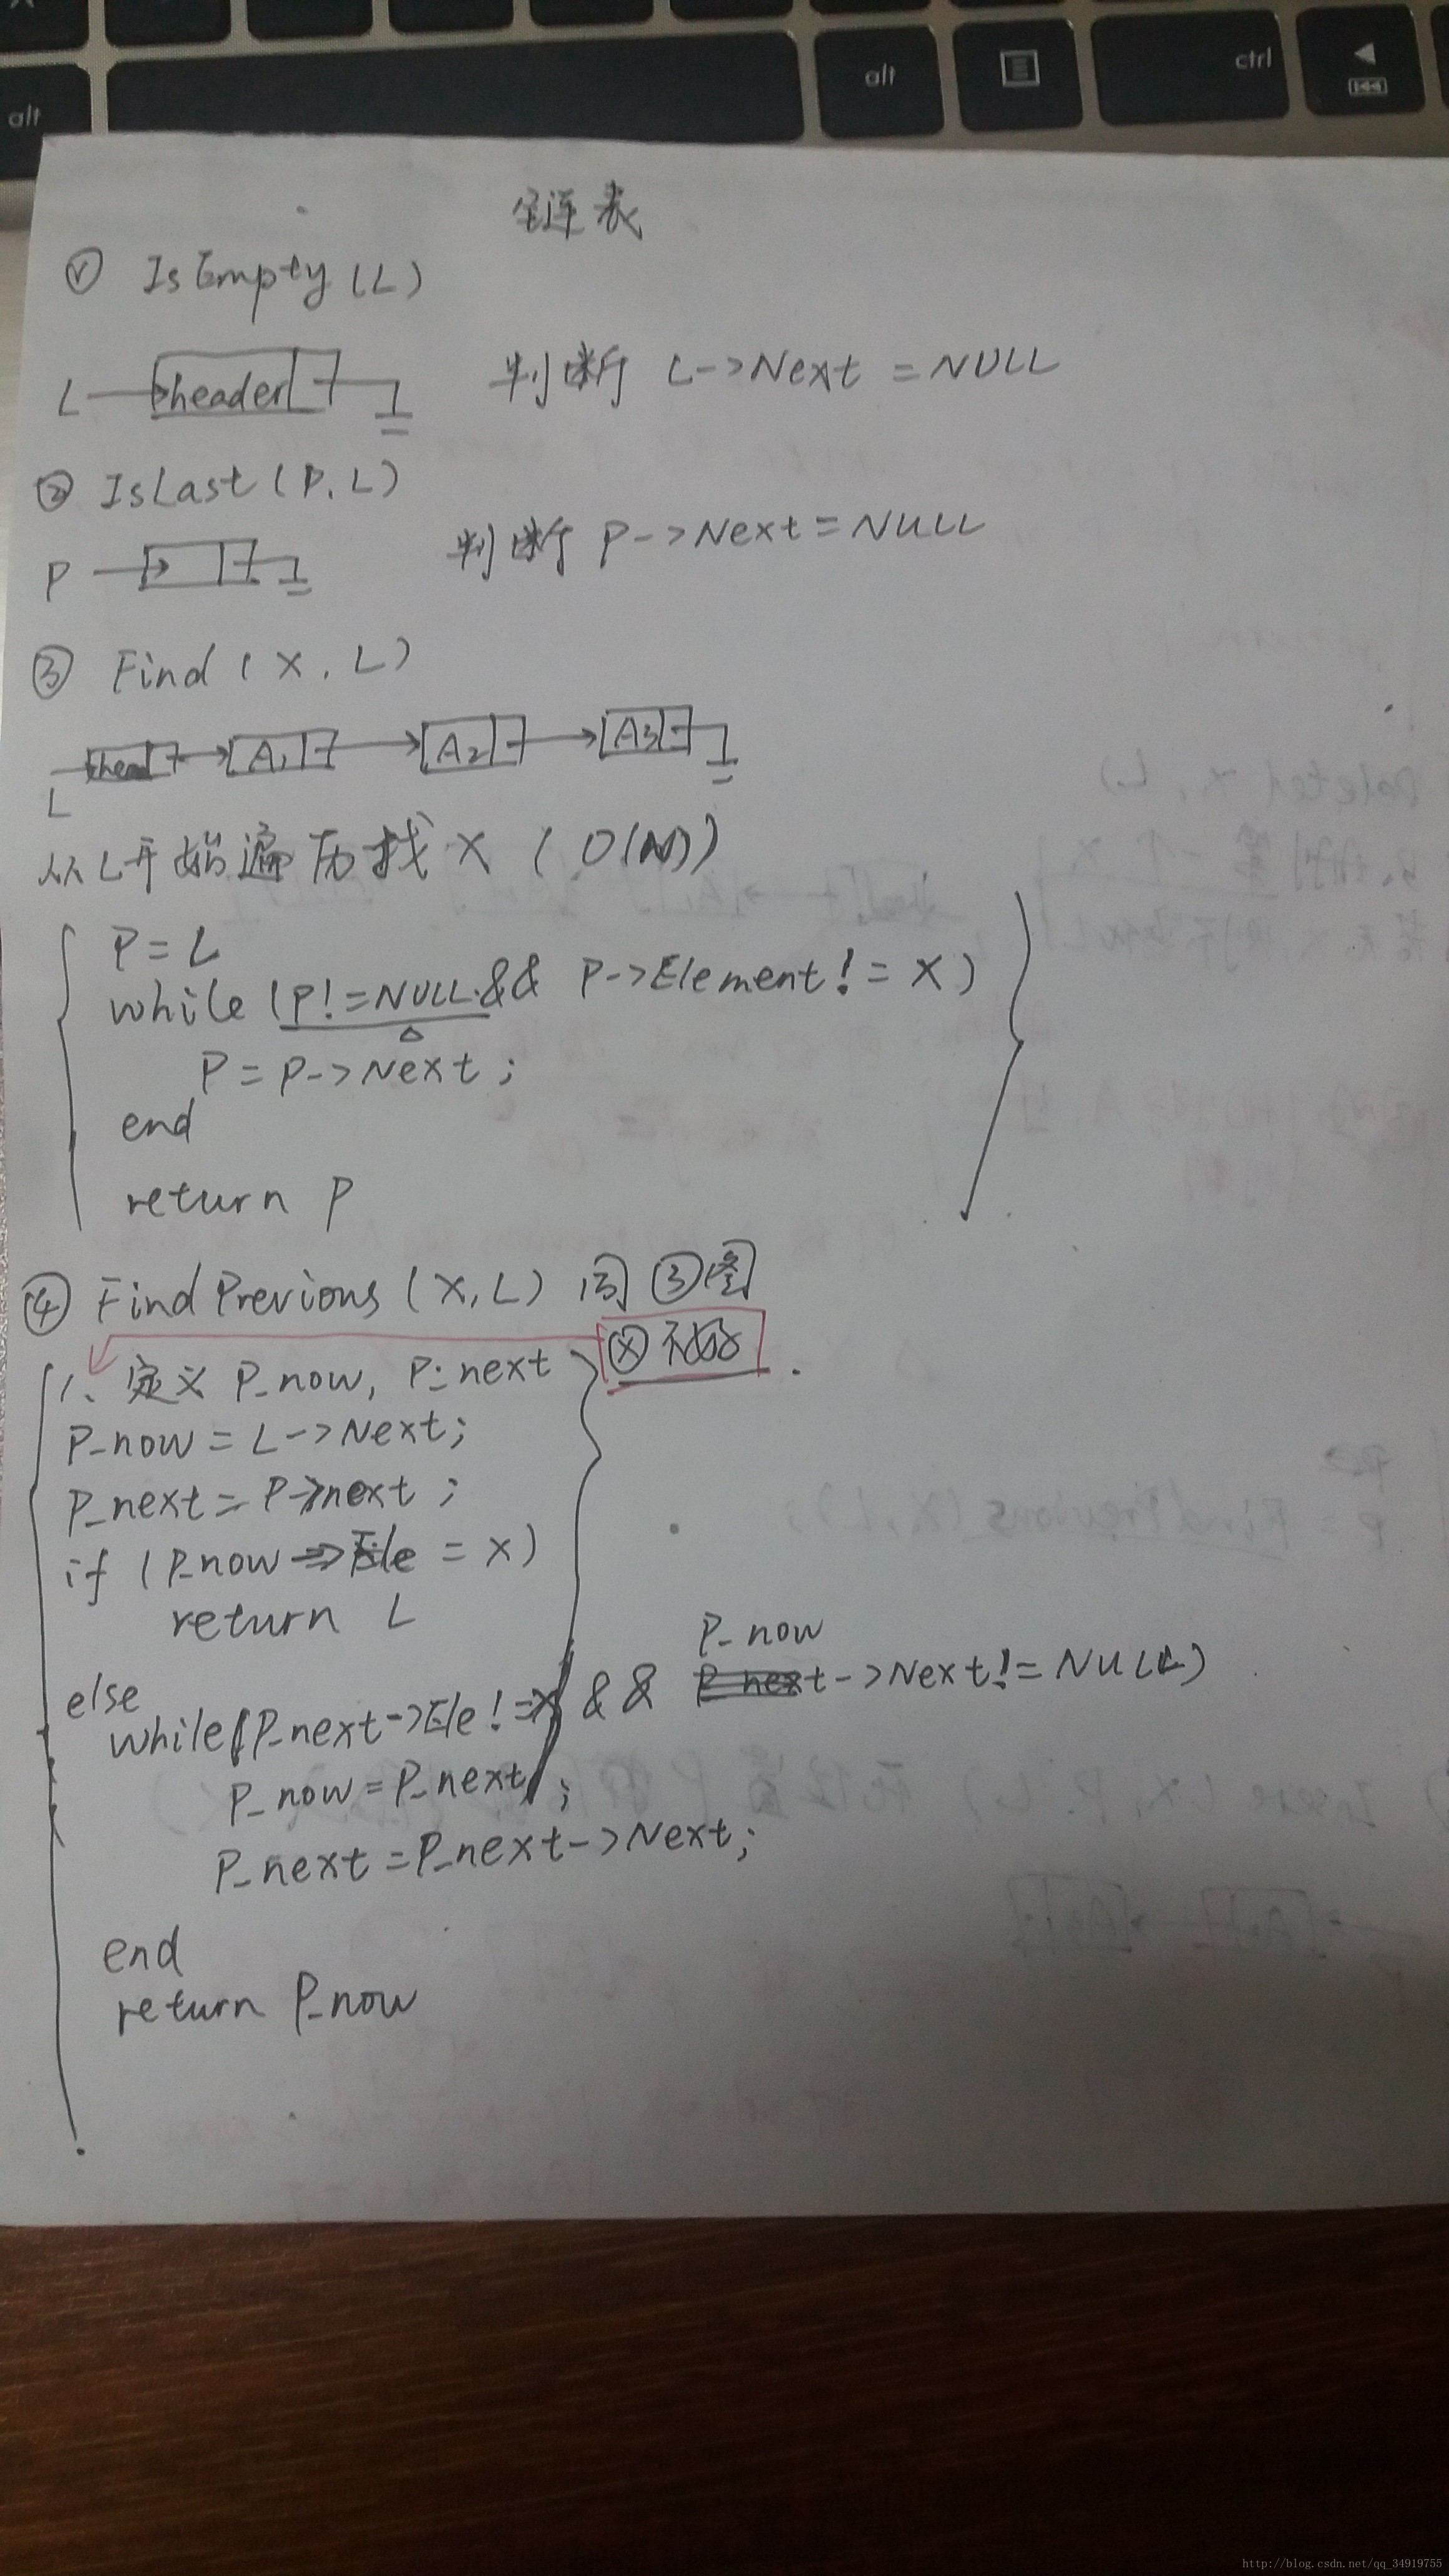 alt
alt
ctrl
链表
① IsEmpty (L)
L header 判断 L->Next = NULL
② IsLast (P, L)
P 判断 P->Next = NULL
③ Find (X, L)
L head A1 A2 A3
从L开始遍历找 X (O(N))
P = L
while (P! = NULL && P->Element! = X)
P = P->Next ;
end
return P
④ FindPrevious (X, L) 同③图
ⓧ 不好
1、定义 P_now, P_next
P_now = L->Next;
P_next = P->next ;
if (P_now->Ele = X)
return L
else
P_now
while (P_next->Ele! = X && P_next->Next! = NULL)
P_now = P_next ;
P_next = P_next->Next;
end
return P_now
http://blog.csdn.net/qq_34919755